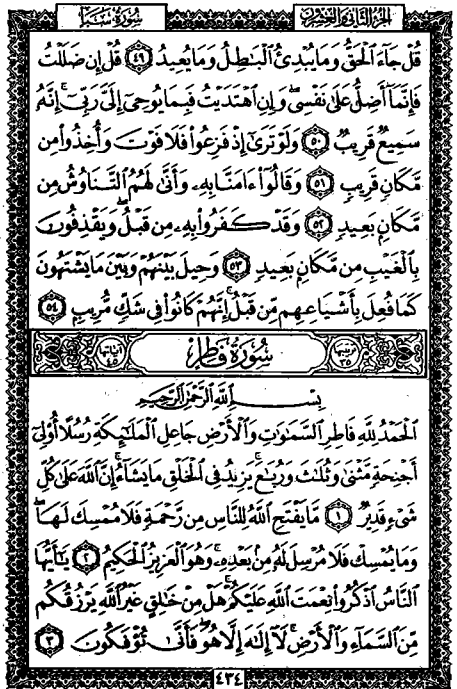 سُورَةُ سَبَإٍ
الجزء الثاني والعشرون
قُلْ جَآءَ ٱلْحَقُّ وَمَا يُبْدِئُ ٱلْبَٰطِلُ وَمَا يُعِيدُ ٤٩ قُلْ إِن ضَلَلْتُ
فَإِنَّمَآ أَضِلُّ عَلَىٰ نَفْسِى ۖ وَإِنِ ٱهْتَدَيْتُ فَبِمَا يُوحِىٓ إِلَىَّ رَبِّىٓ ۚ إِنَّهُۥ
سَمِيعٌ قَرِيبٌ ٥٠ وَلَوْ تَرَىٰٓ إِذْ فَزِعُوا۟ فَلَا فَوْتَ وَأُخِذُوا۟ مِن
مَّكَانٍ قَرِيبٍ ٥١ وَقَالُوٓا۟ ءَامَنَّا بِهِۦ وَأَنَّىٰ لَهُمُ ٱلتَّنَاوُشُ مِن
مَّكَانٍۭ بَعِيدٍ ٥٢ وَقَدْ كَفَرُوا۟ بِهِۦ مِن قَبْلُ ۖ وَيَقْذِفُونَ
بِٱلْغَيْبِ مِن مَّكَانٍۭ بَعِيدٍ ٥٣ وَحِيلَ بَيْنَهُمْ وَبَيْنَ مَا يَشْتَهُونَ
كَمَا فُعِلَ بِأَشْيَاعِهِم مِّن قَبْلُ ۚ إِنَّهُمْ كَانُوا۟ فِى شَكٍّ مُّرِيبٍۭ ٥٤
ترتيبها ٣٥ سُورَةُ فَاطِرٍ آياتها ٤٥
بِسْمِ ٱللَّهِ ٱلرَّحْمَٰنِ ٱلرَّحِيمِ
ٱلْحَمْدُ لِلَّهِ فَاطِرِ ٱلسَّمَٰوَٰتِ وَٱلْأَرْضِ جَاعِلِ ٱلْمَلَٰٓئِكَةِ رُسُلًا أُو۟لِىٓ
أَجْنِحَةٍ مَّثْنَىٰ وَثُلَٰثَ وَرُبَٰعَ ۚ يَزِيدُ فِى ٱلْخَلْقِ مَا يَشَآءُ ۚ إِنَّ ٱللَّهَ عَلَىٰ كُلِّ
شَىْءٍ قَدِيرٌ ١ مَّا يَفْتَحِ ٱللَّهُ لِلنَّاسِ مِن رَّحْمَةٍ فَلَا مُمْسِكَ لَهَا ۖ
وَمَا يُمْسِكْ فَلَا مُرْسِلَ لَهُۥ مِنۢ بَعْدِهِۦ ۚ وَهُوَ ٱلْعَزِيزُ ٱلْحَكِيمُ ٢ يَٰٓأَيُّهَا
ٱلنَّاسُ ٱذْكُرُوا۟ نِعْمَتَ ٱللَّهِ عَلَيْكُمْ ۚ هَلْ مِنْ خَٰلِقٍ غَيْرُ ٱللَّهِ يَرْزُقُكُم
مِّنَ ٱلسَّمَآءِ وَٱلْأَرْضِ ۚ لَآ إِلَٰهَ إِلَّا هُوَ ۖ فَأَنَّىٰ تُؤْفَكُونَ ٣
٤٣٤